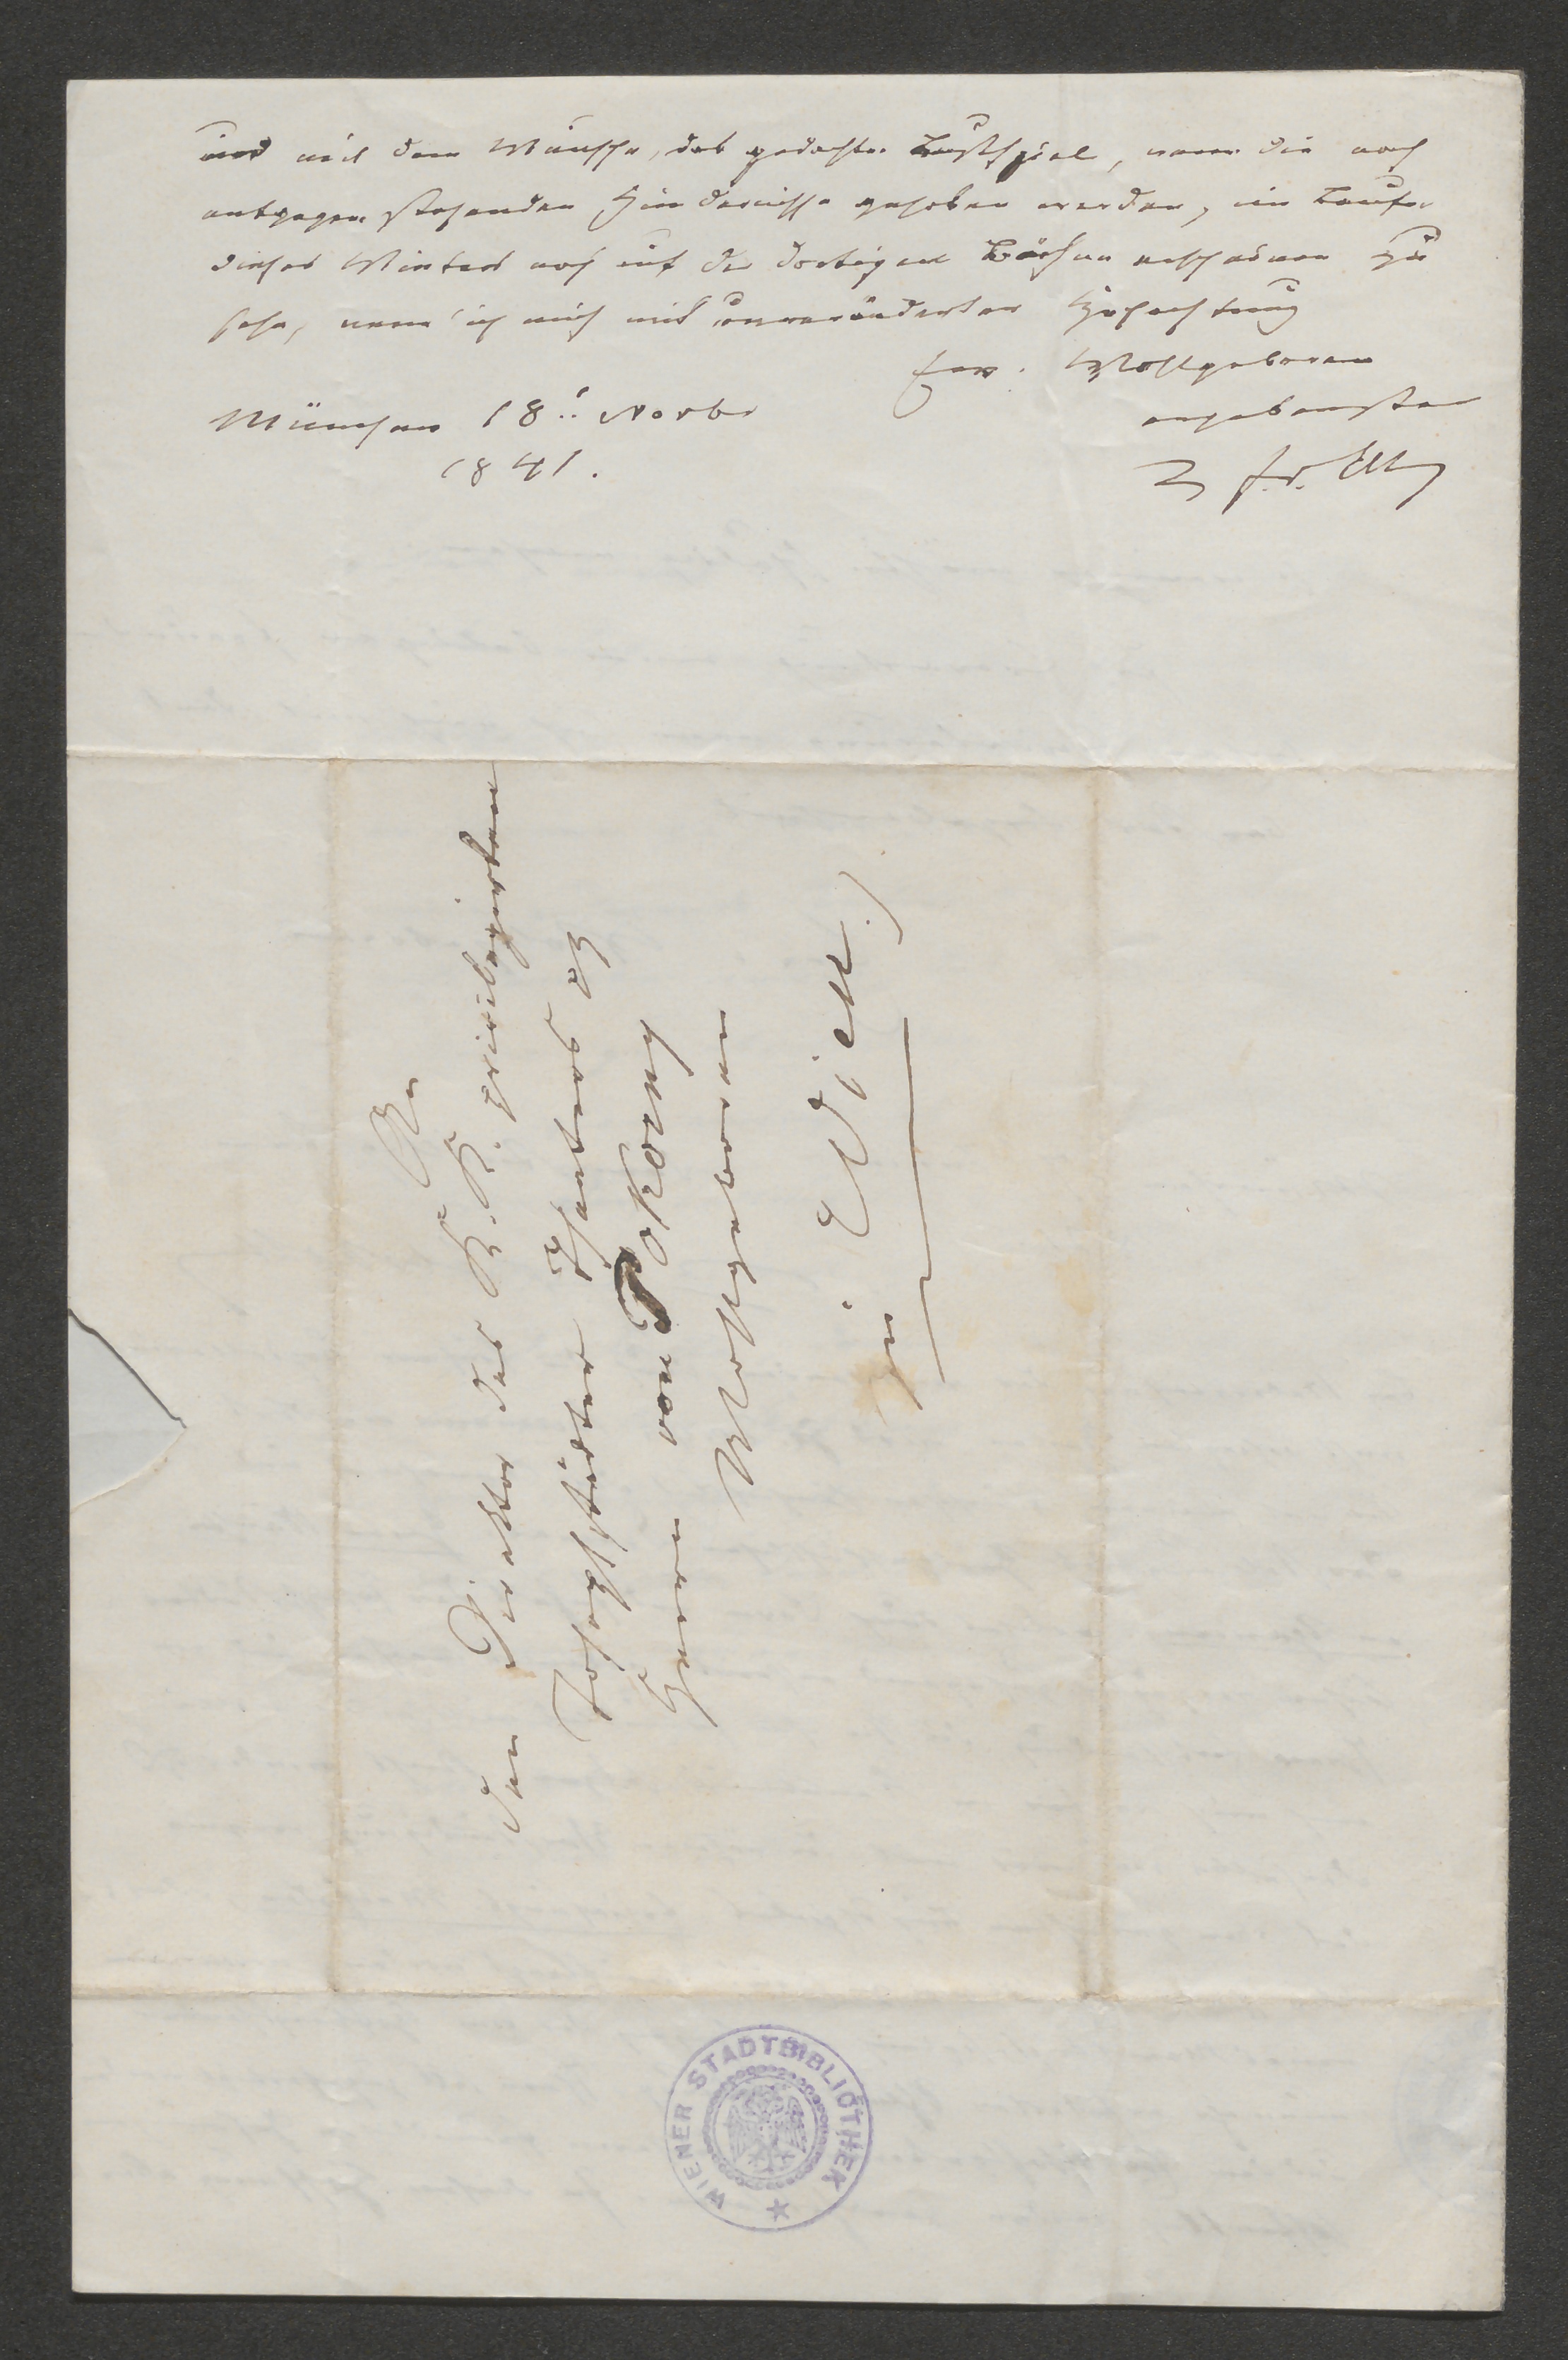 und mit dem Wunsche, das gedachte Lustspiel, wenn die noch
entgegen stehenden Hindernisse gehoben werden, im Laufe
dieses Winters noch auf der dortigen Bühne erscheinen zu
sehe, nenne ich mich mit unveränderter Hochachtung
Euer. Wohlgeboren
ergebenster
München 18t Novbr
1841.
An
den Direktor des K. K. privilegirten
Josephstädter Theaters
Herrn von Pokorny
Wohlgeboren
zu Wien.
WIENER STADTBIBLIOTHEK